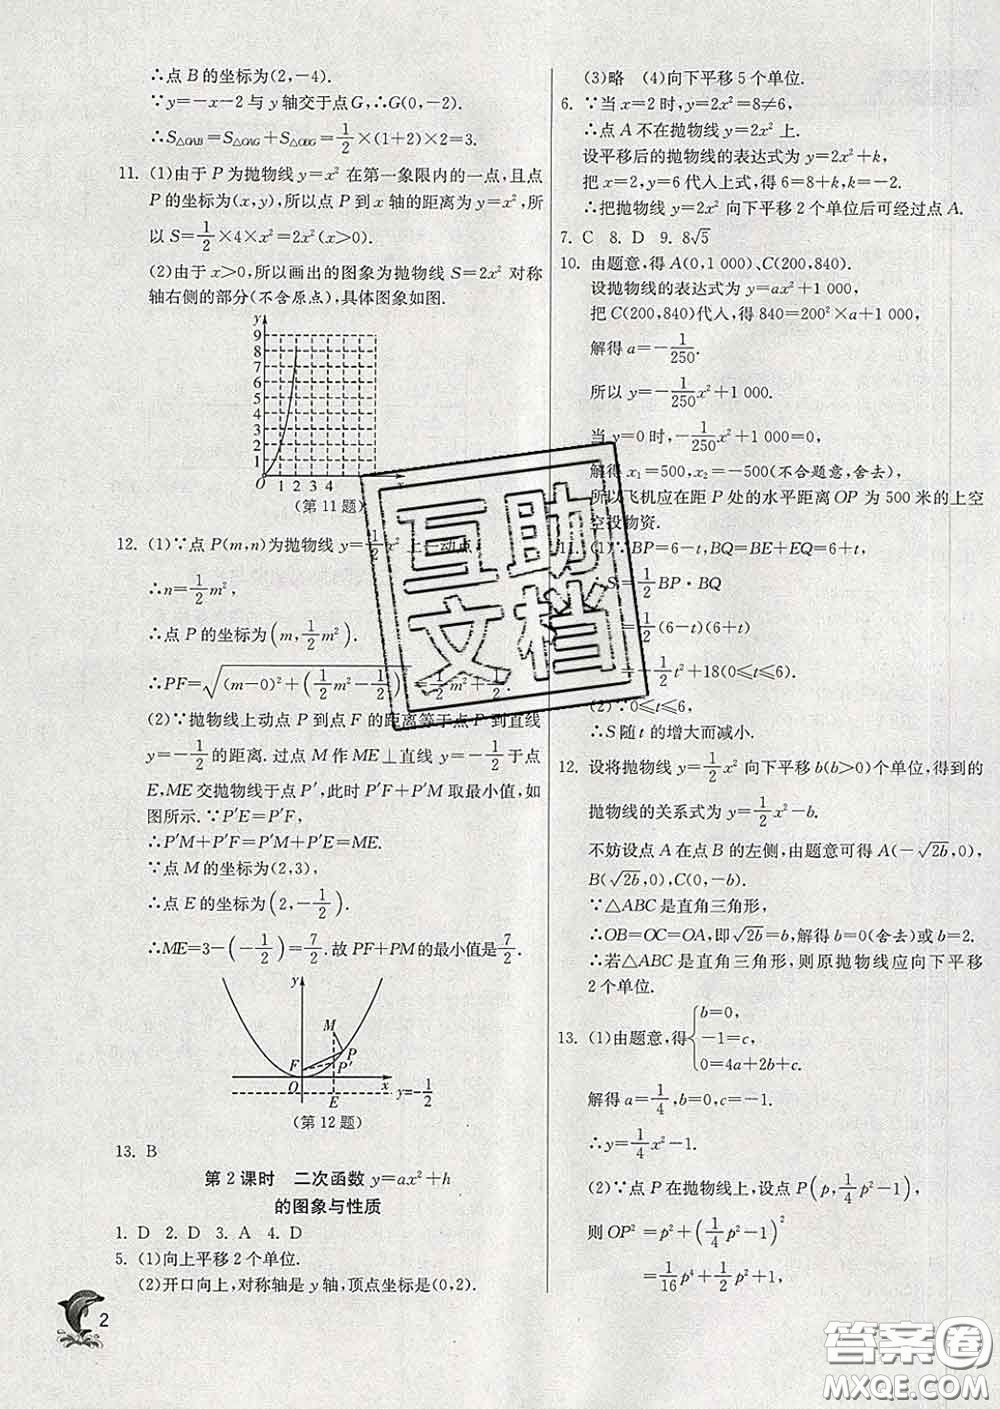 ∴点 B 的坐标为(2,-4).
∵y=-x-2与 y 轴交于点G,∴G(0,-2).
∴S△OAB=S△OAG+S△OBG=1/2×(1+2)×2=3.
11. (1)由于 P 为抛物线 y=x² 在第一象限内的一点,且点
P 的坐标为(x,y),所以点 P 到 x 轴的距离为 y=x²,所
以 S=1/2×4×x²=2x²(x>0).
(2)由于 x>0,所以画出的图象为抛物线 S=2x² 对称
轴右侧的部分(不含原点),具体图象如图.
y
9
8
7
6
5
4
3
2
1
O 1 2 3 4 x
(第11题)
12. (1)∵点 P(m,n)为抛物线 y=1/2x² 上一动点,
∴n=1/2m²,
∴点 P 的坐标为(m,1/2m²).
∴PF=√((m-0)²+(1/2m²-1/2)²)=1/2m²+1/2.
(2)∵抛物线上动点 P 到点 F 的距离等于点 P 到直线
y=-1/2的距离. 过点 M 作 ME⊥直线 y=-1/2于点
E,ME 交抛物线于点 P′,此时 P′F+P′M 取最小值,如
图所示. ∵P′E=P′F,
∴P′M+P′F=P′M+P′E=ME.
∵点 M 的坐标为(2,3),
∴点 E 的坐标为(2,-1/2).
∴ME=3-(-1/2)=7/2. 故 PF+PM的最小值是7/2.
y
M
F P
P′
O x
E y=-1/2
(第12题)
13. B
第2课时 二次函数 y=ax²+h
的图象与性质
1. D 2. D 3. A 4. D
5. (1)向上平移2个单位.
(2)开口向上,对称轴是 y 轴,顶点坐标是(0,2).
2
(3)略 (4)向下平移5个单位.
6. ∵当 x=2 时,y=2x²=8≠6,
∴点 A 不在抛物线 y=2x² 上.
设平移后的抛物线的表达式为 y=2x²+k,
把 x=2,y=6代入上式,得 6=8+k,k=-2.
∴把抛物线 y=2x² 向下平移2个单位后可经过点 A.
7. C 8. D 9. 8√5
10. 由题意,得 A(0,1 000)、C(200,840).
设抛物线的表达式为 y=ax²+1 000,
把 C(200,840)代入,得 840=200²×a+1 000,
解得 a=-1/250.
所以 y=-1/250x²+1 000.
当 y=0 时,-1/250x²+1 000=0,
解得 x₁=500,x₂=-500(不合题意,舍去),
所以飞机应在距 P 处的水平距离 OP 为 500 米的上空
空投物资.
11. (1)∵BP=6-t,BQ=BE+EQ=6+t,
∴S=1/2BP·BQ
=1/2(6-t)(6+t)
=-1/2t²+18(0≤t≤6).
(2)∵0≤t≤6,
∴S 随 t 的增大而减小.
12. 设将抛物线 y=1/2x² 向下平移b(b>0)个单位,得到的
抛物线的关系式为 y=1/2x²-b.
不妨设点 A 在点 B 的左侧,由题意可得 A(-√2b,0),
B(√2b,0),C(0,-b).
∵△ABC是直角三角形,
∴OB=OC=OA,即√2b=b,解得 b=0(舍去)或b=2.
∴若△ABC是直角三角形,则原抛物线应向下平移
2个单位.
13. (1)由题意,得{b=0,
-1=c,
0=4a+2b+c.
解得 a=1/4,b=0,c=-1.
∴y=1/4x²-1.
(2)∵点 P 在抛物线上,设点 P(p,1/4p²-1),
则 OP²=p²+(1/4p²-1)²
=1/16p⁴+1/2p²+1,
互助
文档
答案圈
MXQE.COM